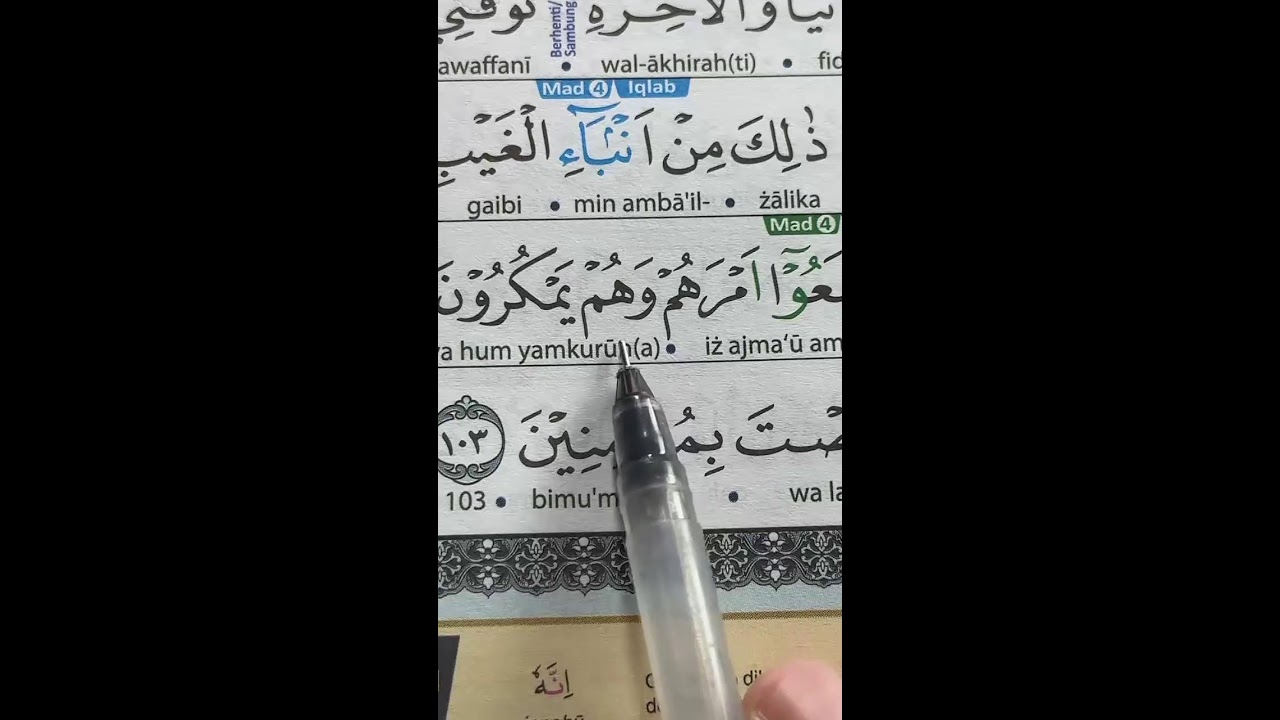 Berhenti/
Sambung
awaffanī • wal-ākhirah(ti) •
Mad 4 Iqlab
ذٰلِكَ مِنْ اَنْۢبَاۤءِ الْغَيْبِ
gaibi • min ambā'il- • żālika
Mad 4
اَمْرَهُمْ وَهُمْ يَمْكُرُوْنَ
hum yamkurūn(a) • iż ajma‘ū am
بِمُؤْمِنِيْنَ ١٠٣
103 • bimu'm • wa la
اِنَّهٗ